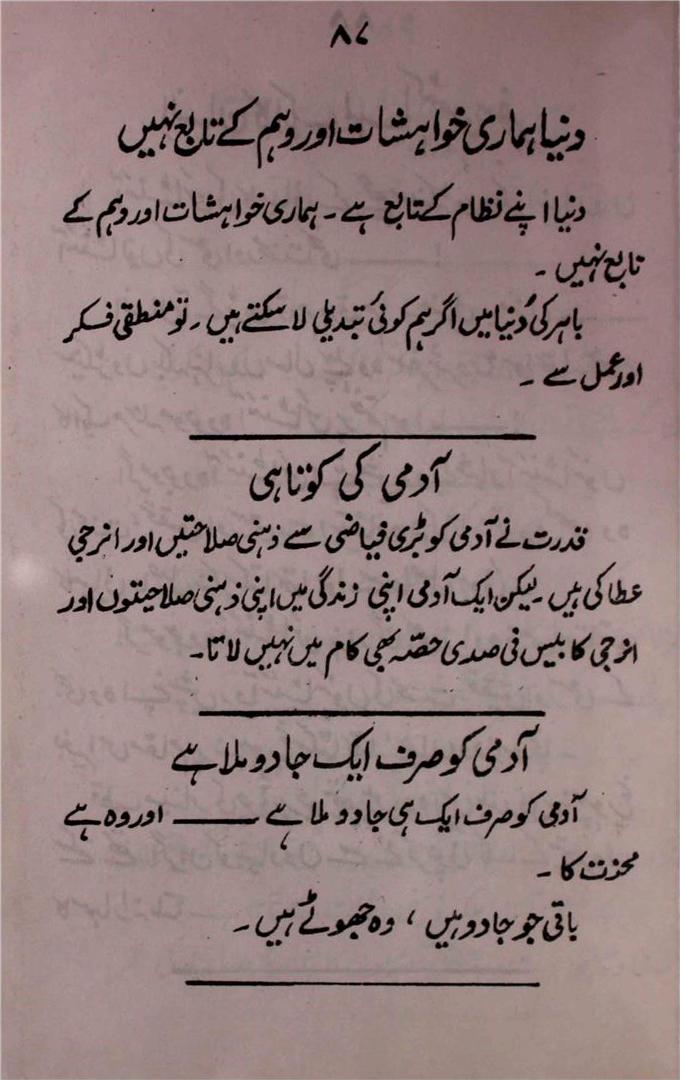 ۸۷
دنیا ہماری خواہشات اور وہم کے تابع نہیں
دنیا اپنے نظام کے تابع ہے۔ ہماری خواہشات اور وہم کے
تابع نہیں۔
باہر کی دُنیا میں اگر ہم کوئی تبدیلی لا سکتے ہیں۔ تو منطقی فکر
اور عمل سے۔
آدمی کی کوتاہی
قدرت نے آدمی کو بڑی فیاضی سے ذہنی صلاحتیں اور انرجی
عطا کی ہیں۔ لیکن ایک آدمی اپنی زندگی میں اپنی ذہنی صلاحیتوں اور
انرجی کا بیس فی صدی حصّہ بھی کام میں نہیں لاتا۔
آدمی کو صرف ایک جادو ملا ہے
آدمی کو صرف ایک ہی جادو ملا ہے —— اور وہ ہے
محنت کا۔
باقی جو جادو ہیں، وہ جھوٹے ہیں۔